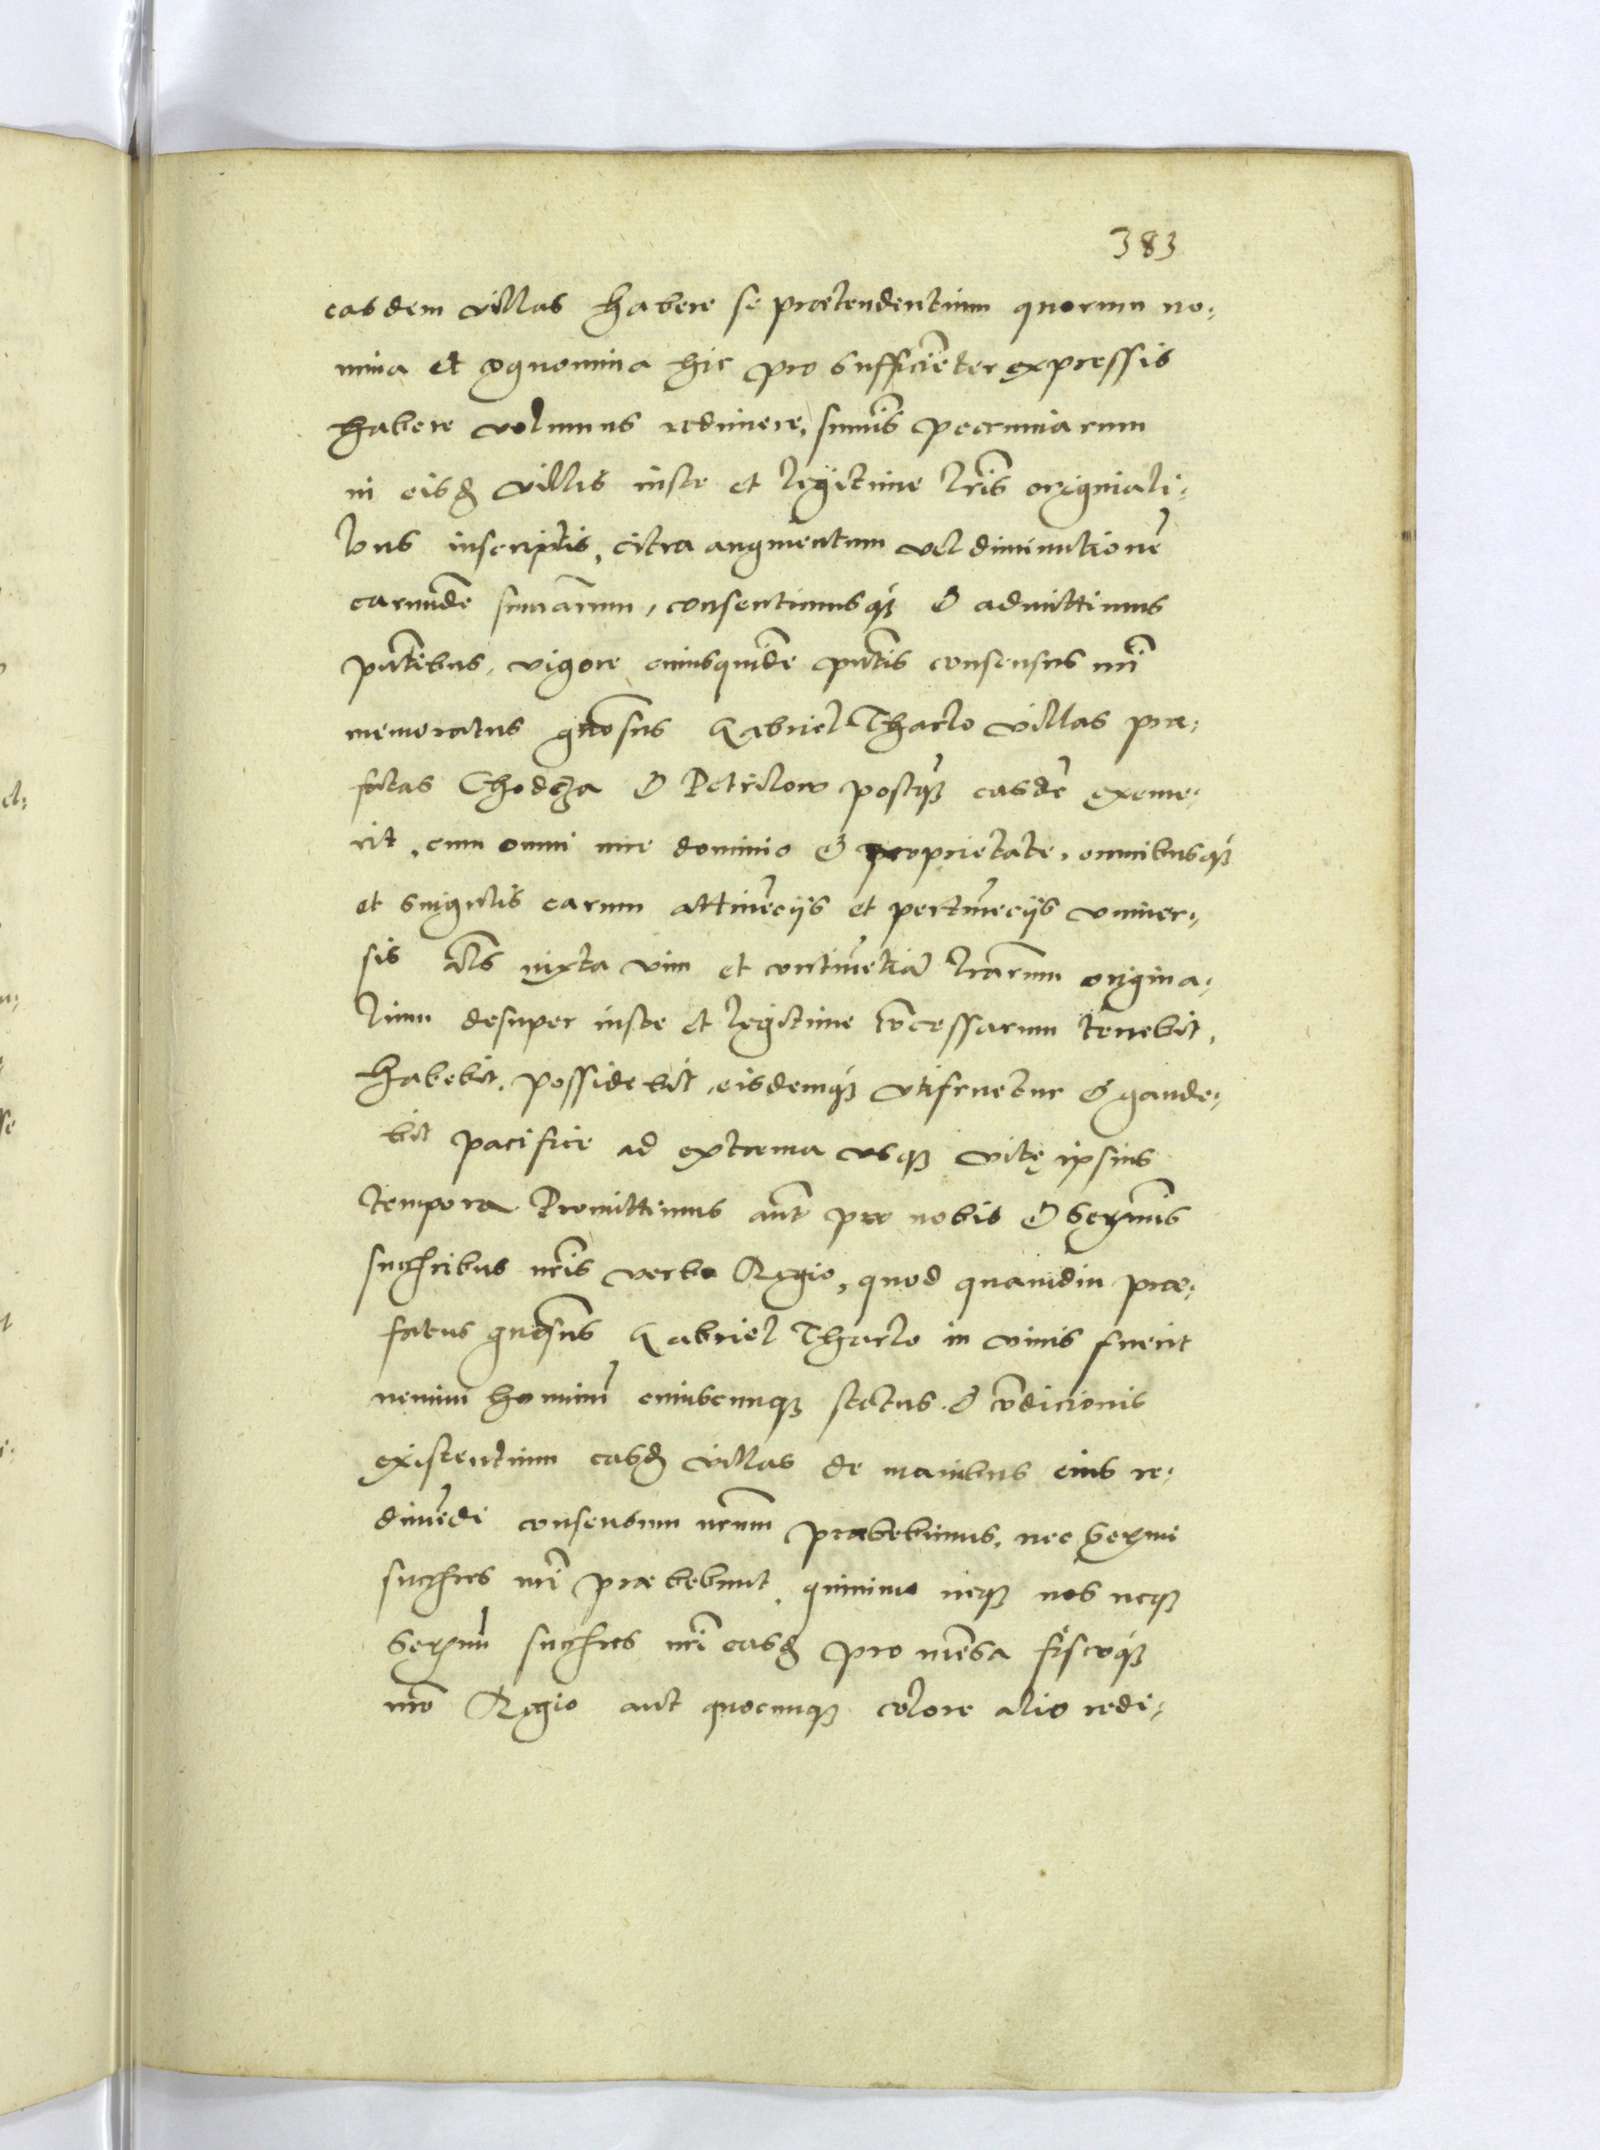 383
easdem villas habere se praetendentium quorum no-
mina et cognomina hic pro sufficiẽter expressis
habere volumus redimere, sum̃is pecuniarum
in eisd̃ villis iuste et legittime lr̃is originali-
bus inscriptis, citra augmentum vel diminutionẽ
earundẽ sum̃arum, consentimusq́ʒ & admittimus
pñtibus, vigore cuiusquidẽ pñtis consensus nr̃i
memoratus gñosus Gabriel Tharlo villas prae-
fatas Chodcza & Petrilow postq̃ʒ easdẽ exeme-
rit, cum omni iure dominio & proprietate, omnibusq́ʒ
et singulis earum attinẽcijs et pertinẽcijs vniuer-
sis als̃ iuxta vim et continẽtiã lr̃arum origina-
lium desuper iuste et legitime cõcessarum tenebit,
habebit, possidebit, eisdemq́ʒ vtifruetur & gaude-
bit pacifice ad extrema vsqʒ vitę ipsius
tempora Promittimus aũt pro nobis & Serm̃is
succribus nr̃is verbo Regio, quod quamdiu prae-
fatus gñosus Gabriel Tharlo in viuis fuerit
nemini hominũ cuiuscunqʒ status & cõdicionis
existentium easd̃ villas de manibus eius re-
dimẽdi consensum nr̃um praebebimus, nec Sermi
succres nr̃i praebebunt, quinimo neqʒ nos neqʒ
Sermi succres nr̃i easd̃ pro mẽsa fiscoq́ʒ
nr̃o Regio aut quocunqʒ colore alio redi-